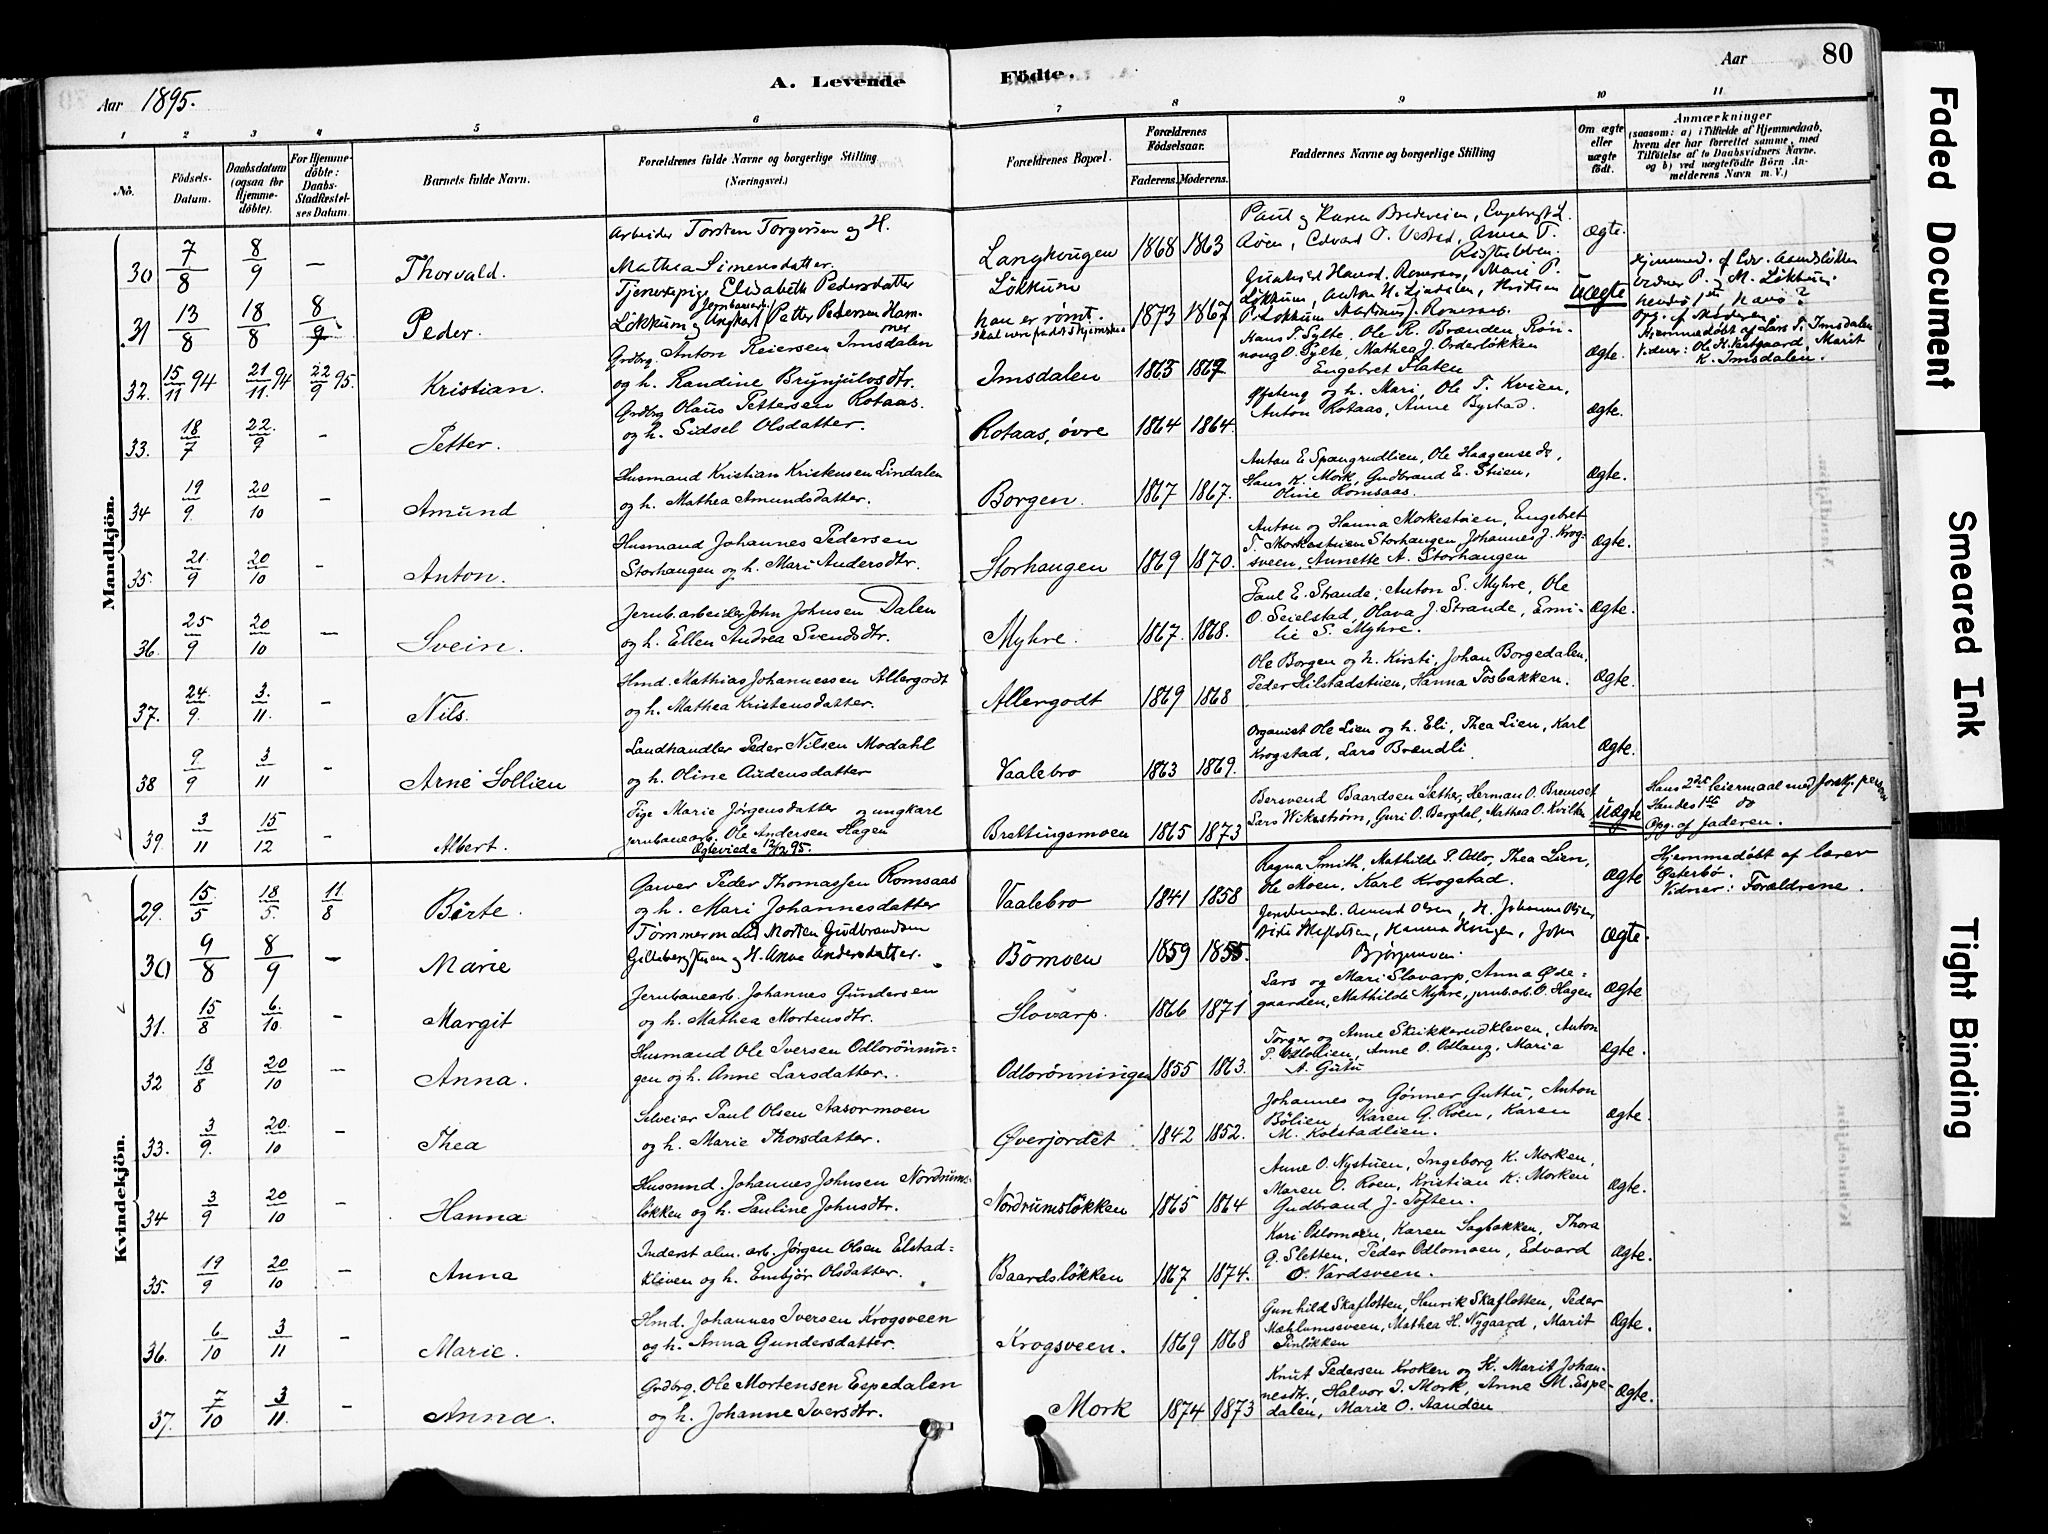 80
Aar 1895.
A. Levende
Födte.
Aar
1 2 3 4 5 6 7 8 9 10 11
No.
Födsels-Datum.
Daabsdatum (ogsaa for Hjemmedøbte).
For Hjemmedøbte: Daabs-Stadfæstelses Datum.
Barnets fulde Navn.
Forældrenes fulde Navne og borgerlige Stilling (Næringsvei.)
Forældrenes Bopæl.
Forældrenes Fødselsaar.
Faderens. Moderens.
Faddernes Navne og borgerlige Stilling
Om ægte eller uægte født.
Anmærkninger
(saasom: a) i Tilfælde af Hjemmedaab, hvem der har forrettet samme, med Tilføielse af to Daabsvidners Navne. og b) ved uægtefødte Börn Anmelderens Navn m. V.)
Mandkjön.
30 7/8 8/9 — Thorvald. Arbeider Torsten Torgersen og H. Mathea Simensdatter. Langhaugen 1868 1863 Paul og Karen Bredeveien, Engebregt L. Aaen, Edvard O. Vestad, Anna T. ægte.
31 13/8 18/8 8/9 Peder. Tjenestepige Elisabeth Pedersdatter Løkkum og Ungkarl Jernbanearb. Petter Pedersen Hammer Løkkum han er rømt. 1873 1867 Løkkum, Anton H. Lindalen, Kristian P. Løkkum Martinus J. uægte
32. 15/11 94 21/11 94 22/9 95. Kristian. Grdbrg. Anton Reiersen Imsdalen og h. Randine Brynjulvsdtr. Imsdalen 1865 1869 Hans T. Sylte. Ole R. Brænden, Rønnoug O. Sylte, Mathea J. Orderløkken Engebret Flaten ægte. Hjemmedøbt af Lars T. Imsdalen Vidner: Ole H. Vestgaard, Marit K. Imsdalen.
33. 18/7 22/9 - Petter. Grdbrg Olaus Pettersen Rotaas. og h. Sidsel Olsdatter. Rotaas, øvre 1864 1864. og h. Mari, Ole T. Kvien, Anton Rotaas, Anne Bystad. ægte.
34 19/9 20/10 - Amund Husmand Kristian Kristensen Lindalen og h. Mathea Amundsdatter. Borgen. 1867 1867. Anton E. Spangrudlien, Ole Haagensen do, Hans K. Mork, Gudbrand E. Stuen, Oline Romsaas. ægte.
35. 21/9 20/10 - Anton. Husmand Johannes Pedersen Storhaugen og h. Mari Andersdtr. Storhaugen 1869 1870. Anton og Hanna Morkestuen, Engebret T. Morkestuen Storhaugen, Johannes J. Krogsveen, Annette A. Storhaugen ægte.
36. 25/9 20/10 - Svein. Jernb.arbeider John Johnsen Dalen og h. Ellen Andrea Svendsdtr. Myhre. 1867. 1868. Paul E. Strande, Anton S. Myhre, Ole O. Seielstad, Olava J. Strande, Emilie S. Myhre. ægte.
37. 24/9 3/11 - Nils. Hmd. Mathias Johannessen Allergodt og h. Mathea Kristensdatter. Allergodt 1869 1868 Ole Borgen og h. Kirsti, Johan Borgedalen, Peder Hilstadstuen, Hanna Fosbakken. ægte.
38 9/9 3/11 - Arne Sollien Landhandler Peder Nilsen Modahl og h. Oline Audensdatter Vaalebro 1863 1869. Organist Ole Lien og h. Eli, Thea Lien, Karl Krogstad, Lars Brændli. ægte.
39 3/11 15/12 Albert. Pige Marie Jörgensdatter og ungkarl jernbanearb. Ole Andersen Hagen Ægteviede 12/12 95. Brettingsmoen 1865 1873 Bersvend Baardsen Sæther, Herman O. Lars Wikstrøm, Guri O. Bergdal, Mathea O. uægte Hans 2det leiermaal med forskj. person Hendes 1ste do Opg. af faderen.
Kvindekjön.
29. 15/5 18/5. 11/8 Birte. Garver Peder Thomassen Romsaas og h. Mari Johannesdatter Vaalebro 1841 1858 Ragna Smith, Mathilde P. Odlo, Thea Lien, Ole Moen, Karl Krogstad. ægte Hjemmedøbt af lærer Vidner: Forældrene.
30 9/8 8/9 - Marie Tømmermand Morten Gudbrandsen og H. Anne Andersdatter. Bömoen 1859 1855. Hanna Haugen, John ægte.
31. 15/8 6/10 - Margit Jernbanearb. Johannes Gundersen og h. Mathea Mortensdtr. Slovarp. 1866 1871 Lars og Mari Slovarp, Anna Ødegaarden, Mathilde Myhre, jernb.arb. O. Hagen ægte
32 18/8 20/10 - Anna. Husmand Ole Iversen Odlorönningen og h. Anne Larsdatter. Odlorönningen 1855 1863. Torger og Anne Skrikkerudkleven, Anton P. Odlolien, Anne O. Odlaug, Marie A. Gutu ægte.
33. 3/9. 20/10 - Thea Selveier Paul Olsen Aasormoen og h. Marie Thorsdatter. Øverjordet 1842 1852. Johannes og Gönner Guttu, Anton Bölien, Karen G. Roen, Karen M. Kolstadlien. ægte.
34 3/9 20/10 - Hanna Husmnd. Johannes Johnsen Nordrumsløkken og h. Pauline Johnsdtr. Nordrumsløkken 1865 1864 Anne O. Nystuen, Ingeborg K. Morken, Maren O. Roen, Kristian K. Morken Gudbrand J. Toften. ægte.
35. 19/9 20/10 - Anna Inderst alm. arb. Jørgen Olsen Elstadkliven og h. Embjør Olsdatter. Baardsløkken 1867 1874. Kari Odlomoen, Karen Sagbakken, Thora G. Sletten, Peder Odlomoen, Edvard O. Vardsveen. ægte.
36. 6/10 3/11 - Marie. Hmd. Johannes Iversen Krogsveen og h. Anna Gundersdatter. Krogsveen. 1869 1868 Gunhild Skaflotten, Henrik Skaflotten, Peder Mæhlumsveen, Mathea H. Nygaard, Marit Pinløkken ægte.
37. 7/10 3/11. - Anna. Grdbrg. Ole Mortensen Espedalen og h. Johanne Iversdtr. Mork 1874 1873 Knut Pedersen Kroken og K. Marit Johannesdtr., Halvor I. Mork, Anne M. Espedalen, Marie O. Aanden ægte.
Faded Document
Smeared Ink
Tight Binding